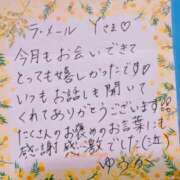 ラ・メール Yさま♡
今月もお会いできて
とっても嬉しかったです♡
いつもお話しも聞いて
くれてありがとうございます
たくさんのお褒めのお言葉にも
感謝感激でした(泣)
ゆうか